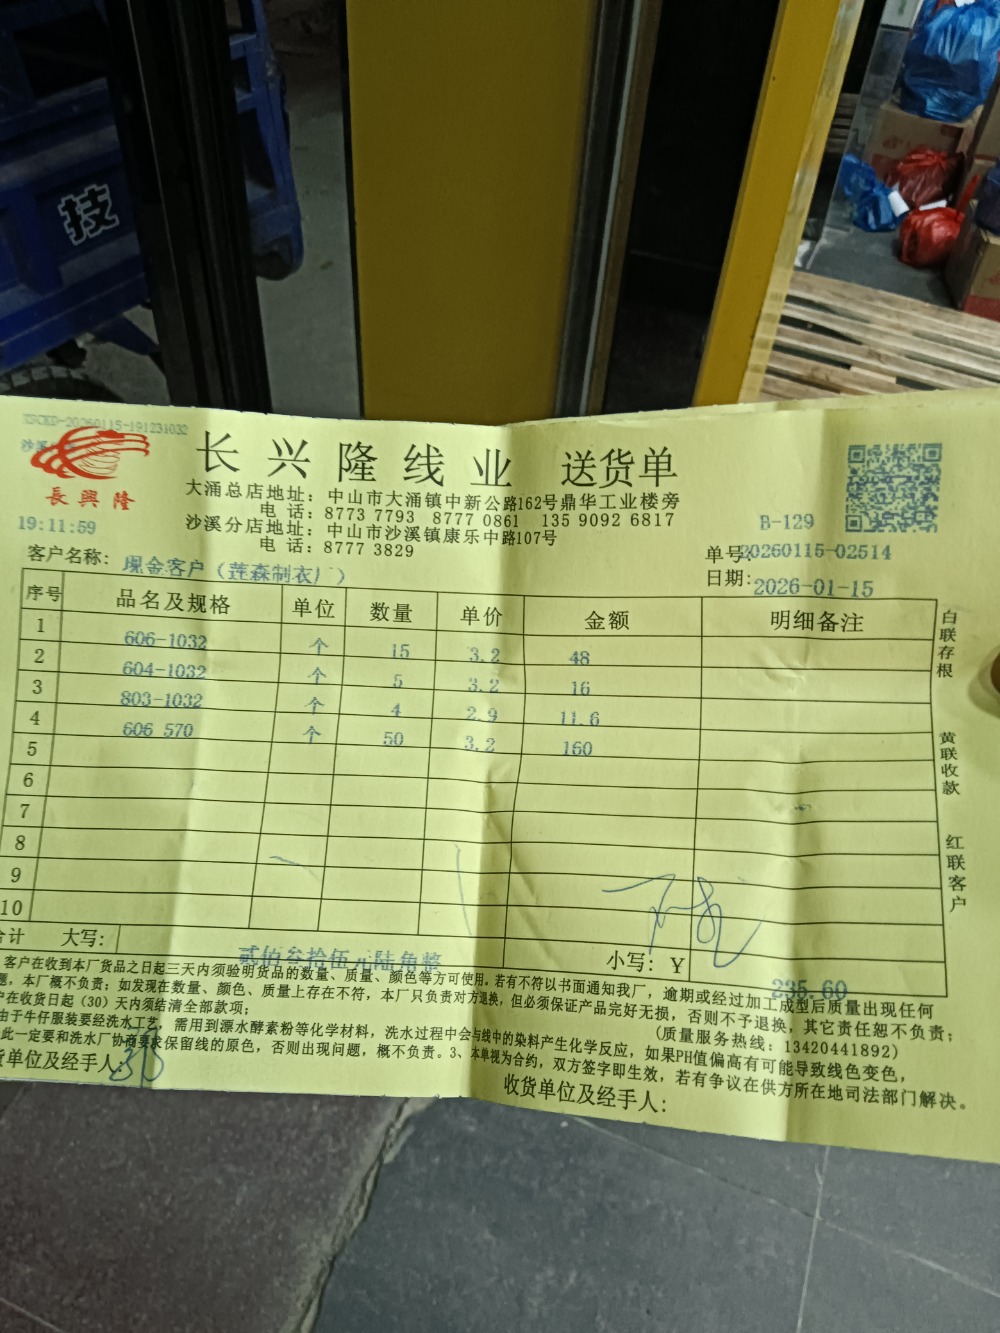 技
XSCKD-20260115-191231032
沙溪
長興隆
19:11:59
长兴隆线业 送货单
大涌总店地址：中山市大涌镇中新公路162号鼎华工业楼旁
电 话：8773 7793 8777 0861 135 9092 6817
沙溪分店地址：中山市沙溪镇康乐中路107号
电 话：8777 3829
B-129
单号:20260115-02514
日期:2026-01-15
客户名称：现金客户（莲森制衣厂）
序号 品名及规格 单位 数量 单价 金额 明细备注
1 606-1032 个 15 3.2 48
2 604-1032 个 5 3.2 16
3 803-1032 个 4 2.9 11.6
4 606 570 个 50 3.2 160
5
6
7
8
9
10
合计 大写： 贰佰叁拾伍元陆角整 小写：Y 235.60
白联存根
黄联收款
红联客户
客户在收到本厂货品之日起三天内须验明货品的数量、质量、颜色等方可使用。若有不符以书面通知我厂，逾期或经过加工成型后质量出现任何
题，本厂概不负责；如发现在数量、颜色、质量上存在不符，本厂只负责对方退换，但必须保证产品完好无损，否则不予退换，其它责任恕不负责；
户在收货日起（30）天内须结清全部款项；
(质量服务热线：13420441892)
由于牛仔服装要经洗水工艺，需用到源水酵素粉等化学材料，洗水过程中会与线中的染料产生化学反应，如果PH值偏高有可能导致线色变色，
此一定要和洗水厂协商要求保留线的原色，否则出现问题，概不负责。3、本单视为合约，双方签字即生效，若有争议在供方所在地司法部门解决。
货单位及经手人:
收货单位及经手人：